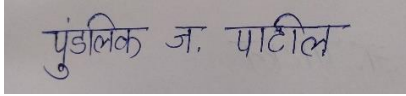 पुंडलिक ज. पाटील